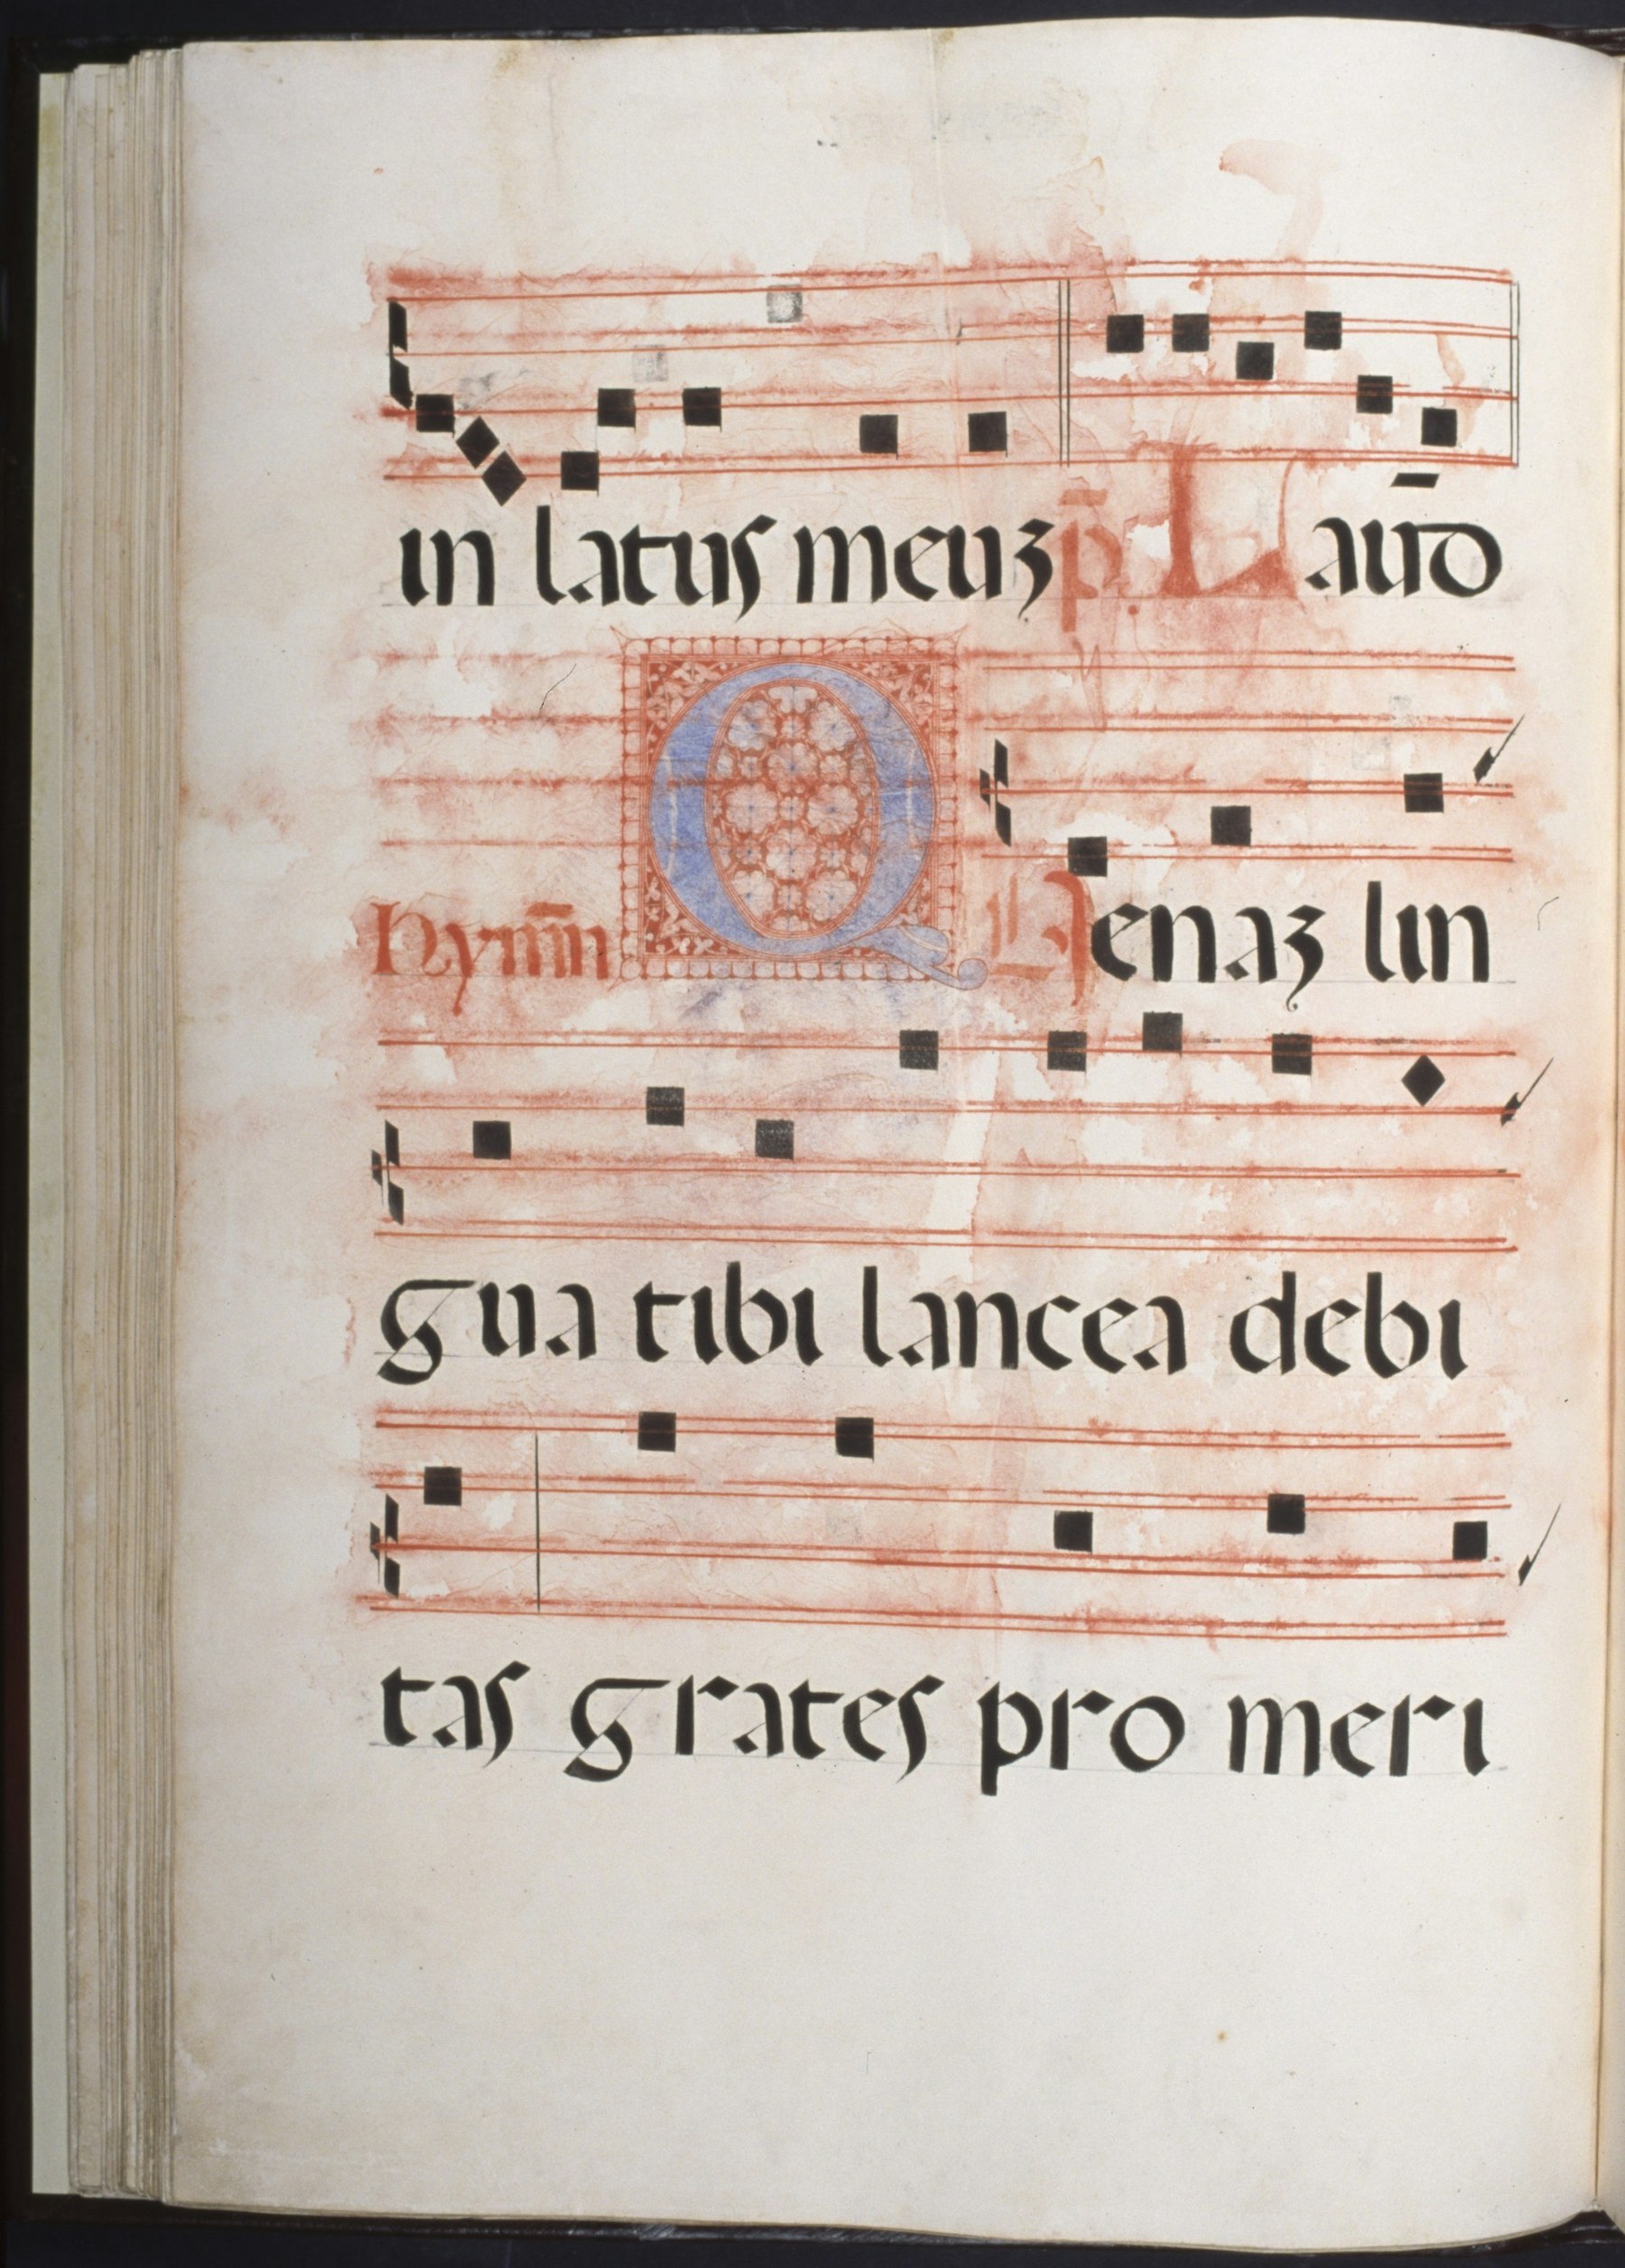 in latus meuꝫ p̄. Laud̄
Hym̄n QUenaꝫ lin
gua tibi lancea debi
tas grates pro meri